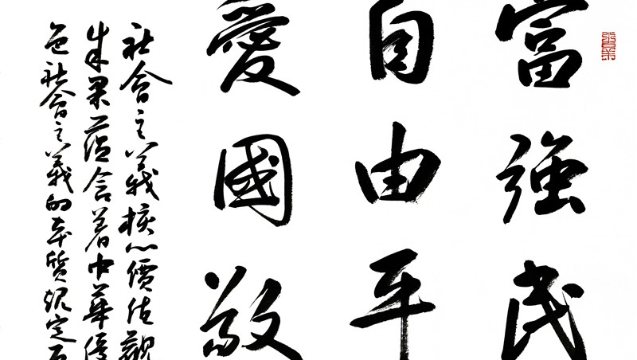 富強民
自由平
愛國敬
社會主義核心價值觀
成果蕴含着中華優
色社會主義的本質規定